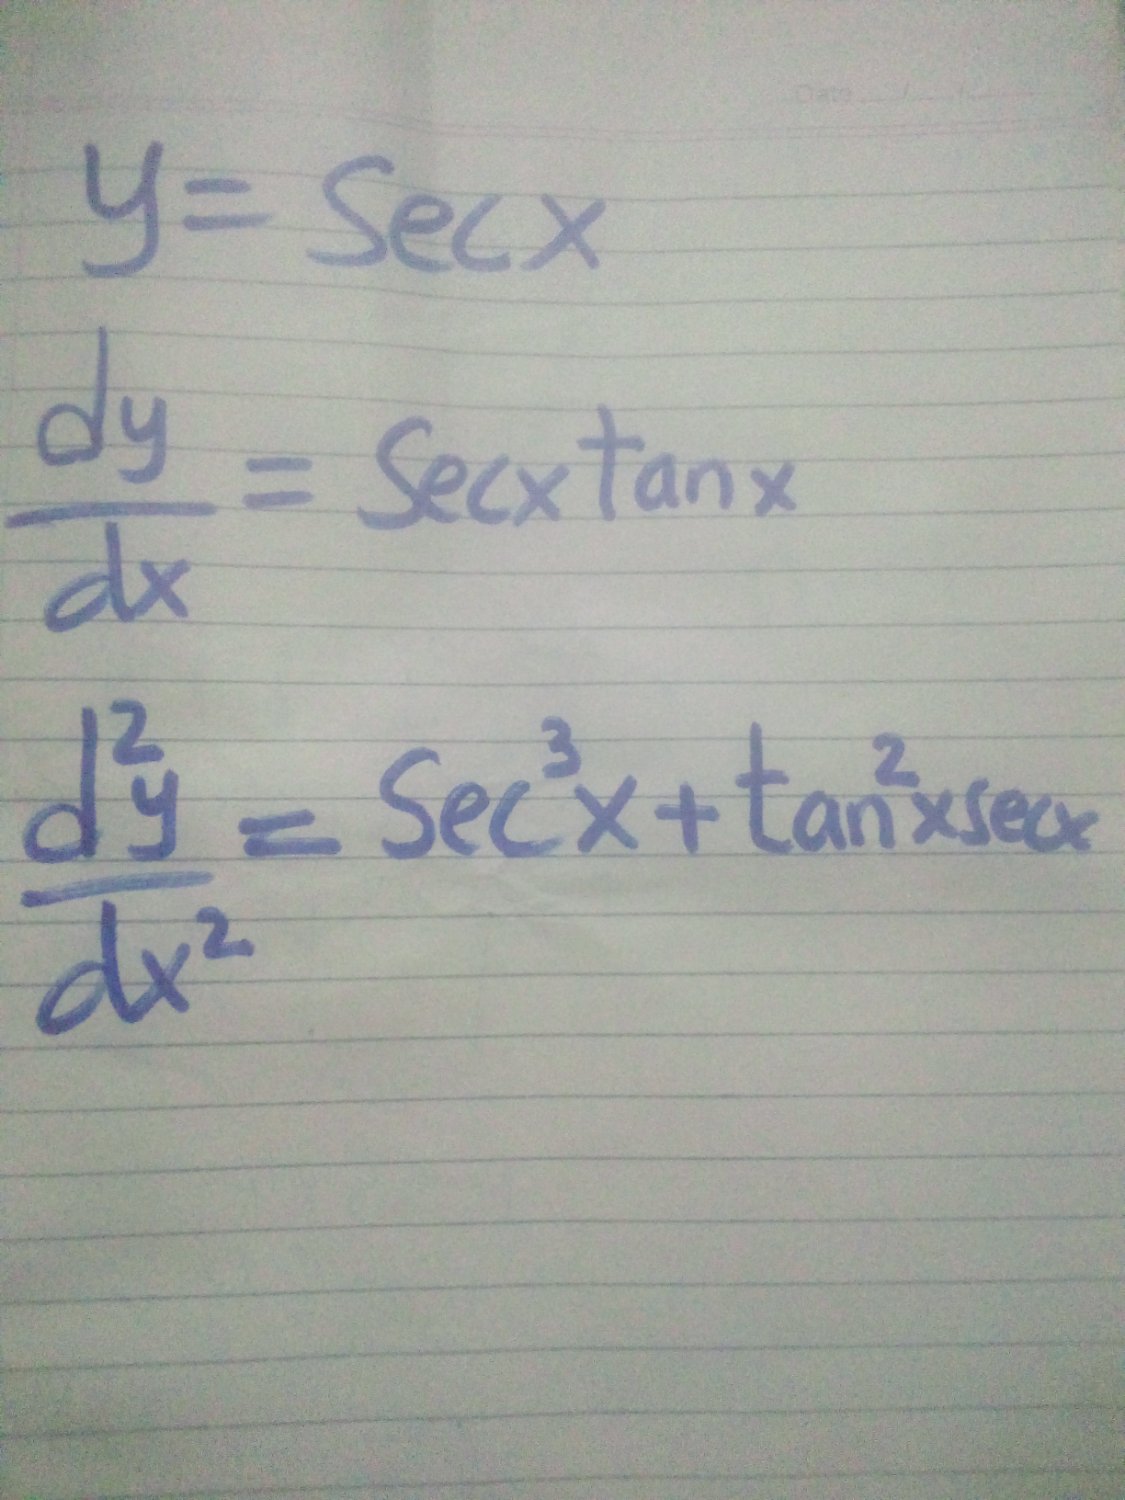 Date ..../..../....
y = sec x
dy/dx = sec x tan x
d²y/dx² = sec³x + tan²x sec x